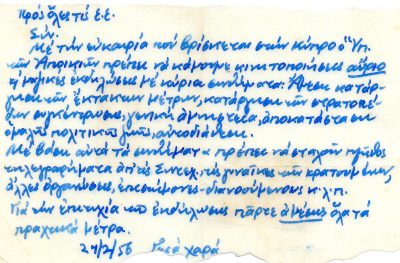 Πρός ὅλες τίς ἐ.ἐ.
Συν.
Μέ τήν εὐκαιρία πού βρίσκεται στήν Κύπρο ὁ Ὑπ.
τῶν Ἀποικιῶν πρέπει νά κάνουμε κινητοποιήσεις αὔριο
ἤ μαζικές ἐκδηλώσεις μέ κύρια συνθήματα: Ἄμεση κατάρ-
γηση τῶν ἔκτακτων μέτρων, κατάργηση τῶν στρατοπέ-
δων συγκέντρωσης, γενική ἀμνηστεία, ἀποκατάσταση
ὁμαλῆς πολιτικῆς ζωῆς, αὐτοδιάθεση.
Μέ βάση αὐτά τά συνθήματα πρέπει νά σταλοῦν πλῆθος
τηλεγραφήματα ἀπό τίς Συντεχ. τίς γυναῖκες τῶν κρατουμένων,
ἄλλες ὀργανώσεις, ἐπιστήμονες-διανοούμενους κ.λ.π.
Γιά τήν ἐπιτυχία τῶν ἐκδηλώσεων πάρτε ἀμέσως ὅλα τά
πρακτικά μέτρα.
27/2/56 Γειά χαρά